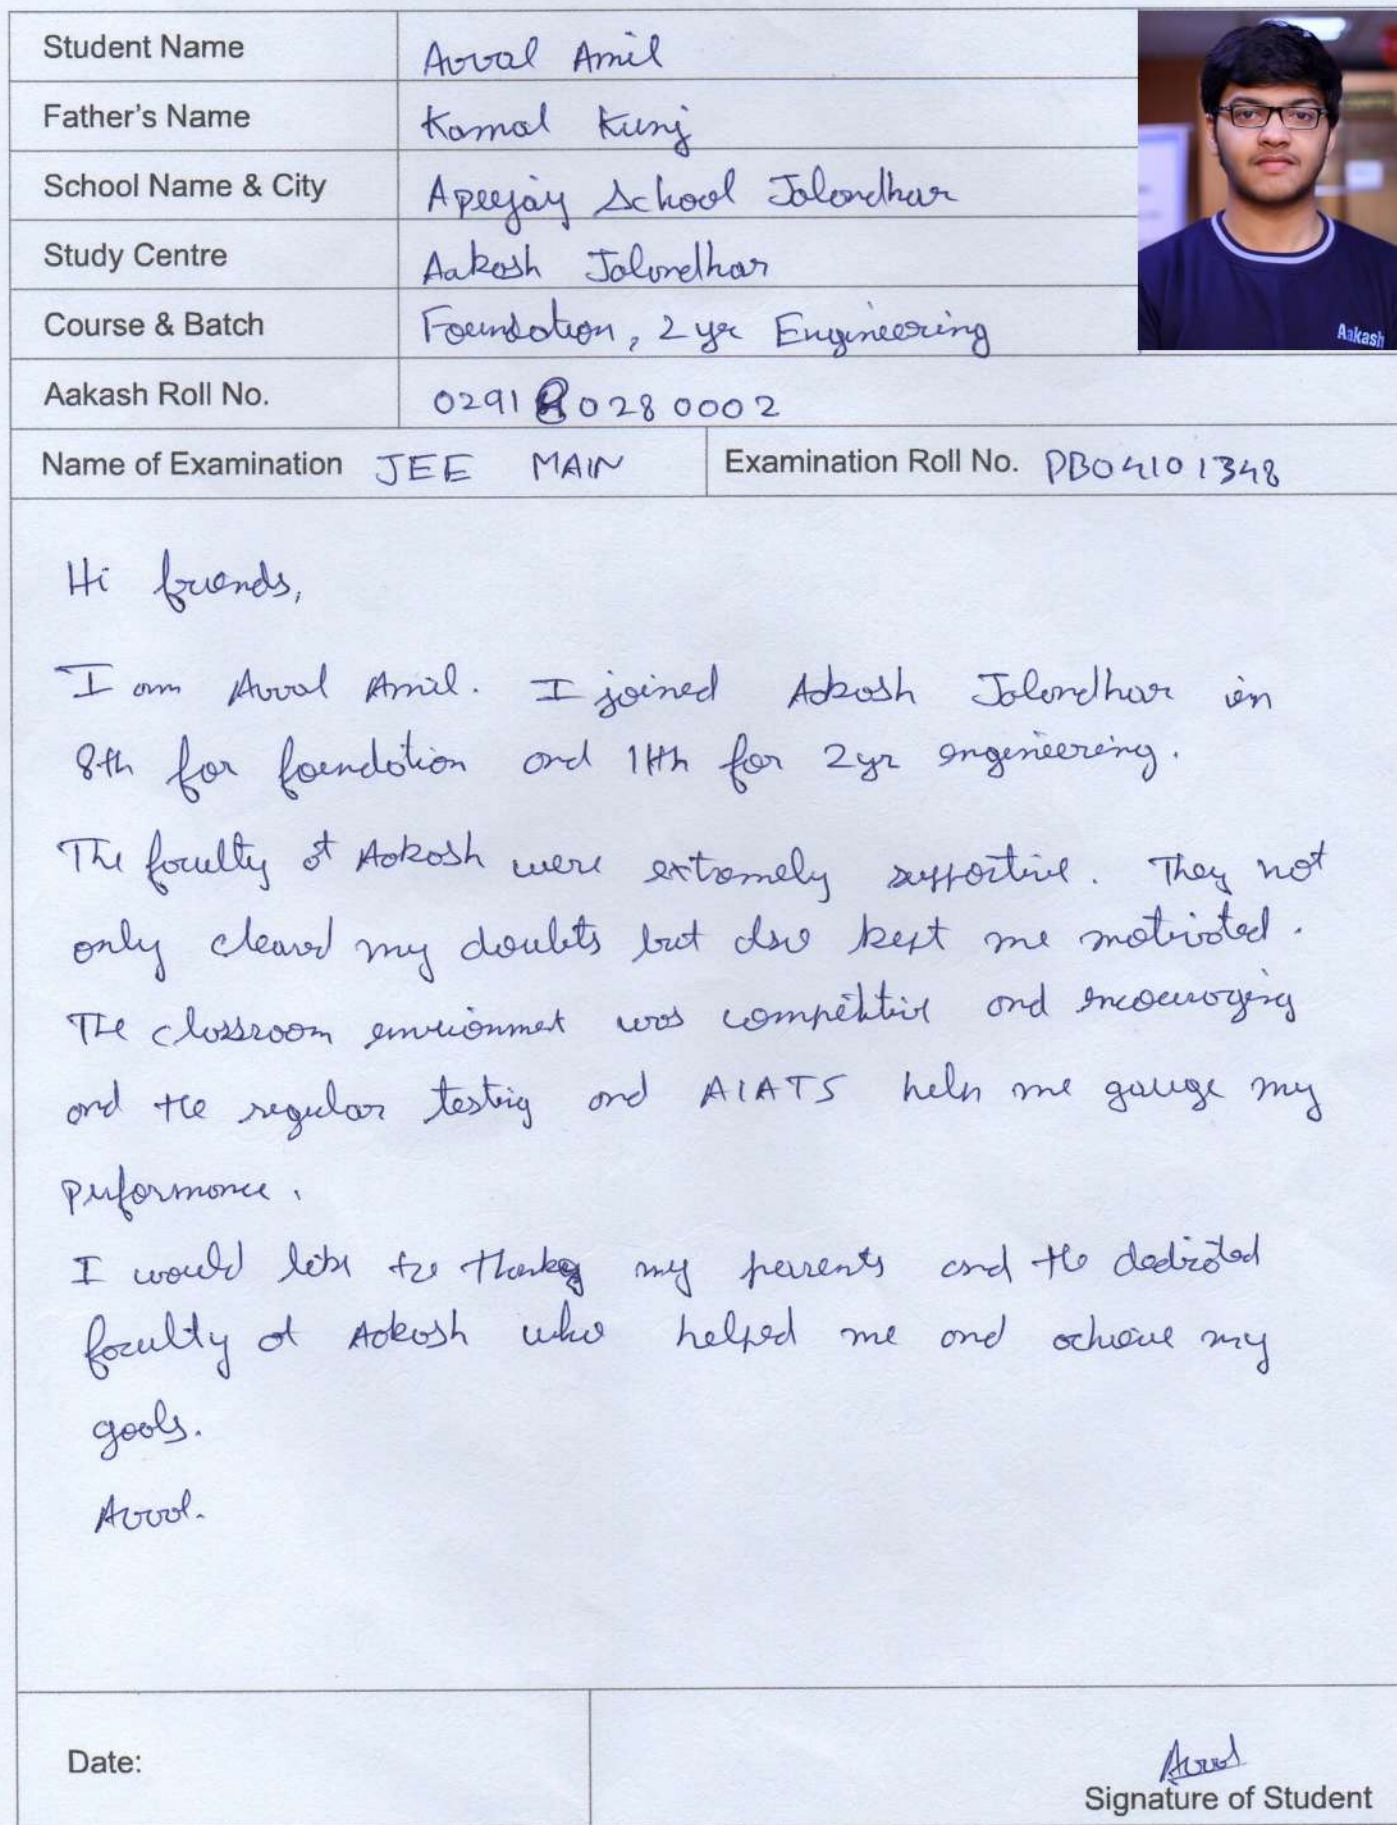 Student Name Avval Amil
Father's Name Kamal Kunj
School Name & City Apeejay School Jalandhar
Study Centre Aakash Jalandhar
Course & Batch Foundation, 2 yr Engineering
Aakash
Aakash Roll No. 0291 0280002
Name of Examination JEE MAIN Examination Roll No. PB04101348
Hi friends,
I am Avval Amil. I joined Aakash Jalandhar in
8th for foundation and 11th for 2yr engineering.
The faculty at Aakash were extremely supportive. They not
only cleared my doubts but also kept me motivated.
The classroom environment was competitive and encouraging
and the regular testing and AIATS help me gauge my
performance.
I would like to thank my parents and the dedicated
faculty at Aakash who helped me and achieve my
goals.
Avval.
Date:
Avval
Signature of Student